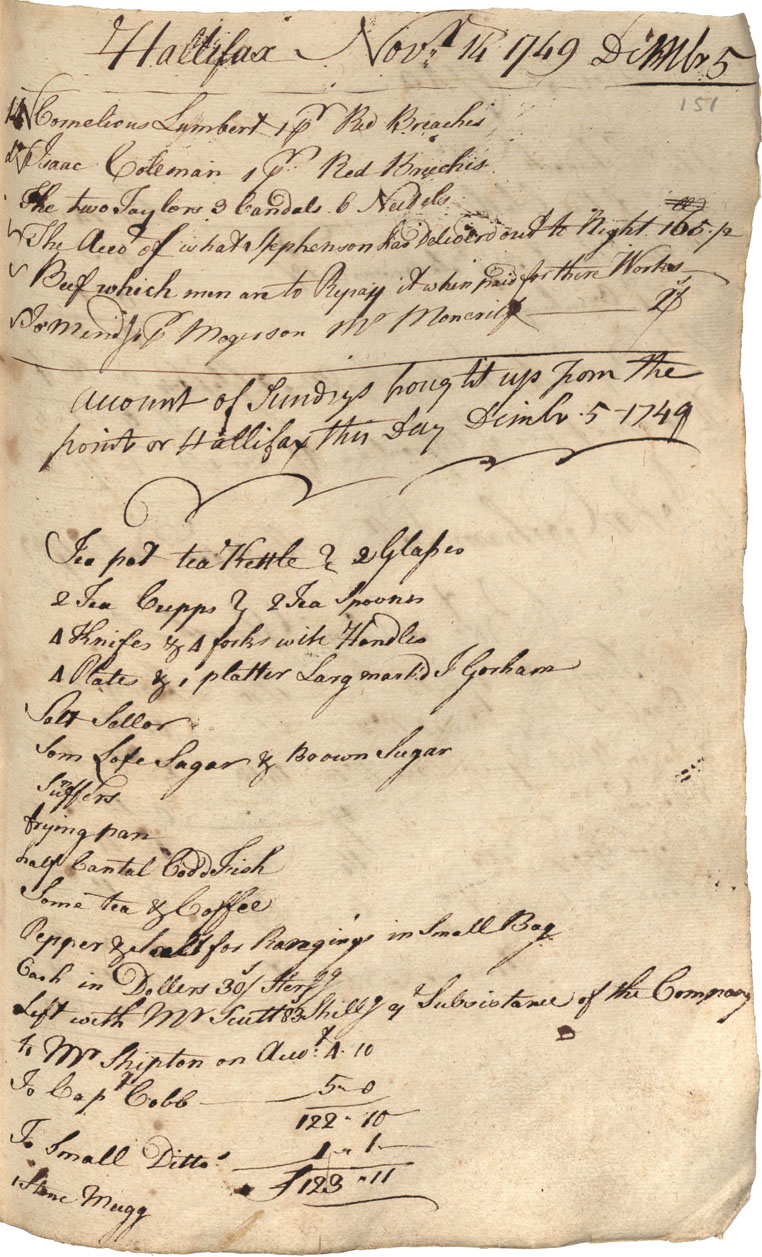 Hallifax Novr. 14 1749 Dimbr 5
151
14 Cornelious Lumbert 1 pr Red Breaches
do Isaac Coleman 1 pr Red Bruchis
The two Taylors 3 Candals 6 Nedels
The Acco. of what Stephenson has deliverd out to Night 165 p
Beef which men are to Repay it when paid for there Works
To Mend 1 pr Mogerson Mr Moncrife
account of Sundrys bought up from the
point or Hallifax this Day Dimbr. 5 - 1749
Tea pot tea Kettle & 2 Glasses
2 Tea Cupps & 2 Tea Spoones
4 Knifes & 4 forks wite Handles
4 Plates & 1 platter Larg markd J Gorham
Salt Sallor
Som Lofe Sagar & Brown Sugar
Snuffers
frying pan
half Cantal Codd Fish
Some tea & Coffee
Pepper & Salt for Rangings in Small Bag
Cash in Dollers 30s/ Sterg
Left with Mr Scutt 83 Shillg of Subsistance of the Company
to Mr Shipton on Acco. 4 - 10
To Capt Cobb 5 - 0
122 - 10
To Small Ditto 1 - 1
£123 - 11
1 Stone Mugg